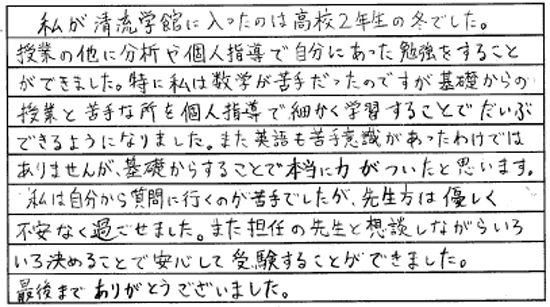 私が清流学館に入ったのは高校2年生の冬でした。
授業の他に分析や個人指導で自分にあった勉強をすること
ができました。特に私は数学が苦手だったのですが基礎からの
授業と苦手な所を個人指導で細かく学習することでだいぶ
できるようになりました。また英語も苦手意識があったわけでは
ありませんが、基礎からすることで本当に力がついたと思います。
私は自分から質問に行くのが苦手でしたが、先生方は優しく
不安なく過ごせました。また担任の先生と想談しながらいろ
いろ決めることで安心して受験することができました。
最後までありがとうございました。